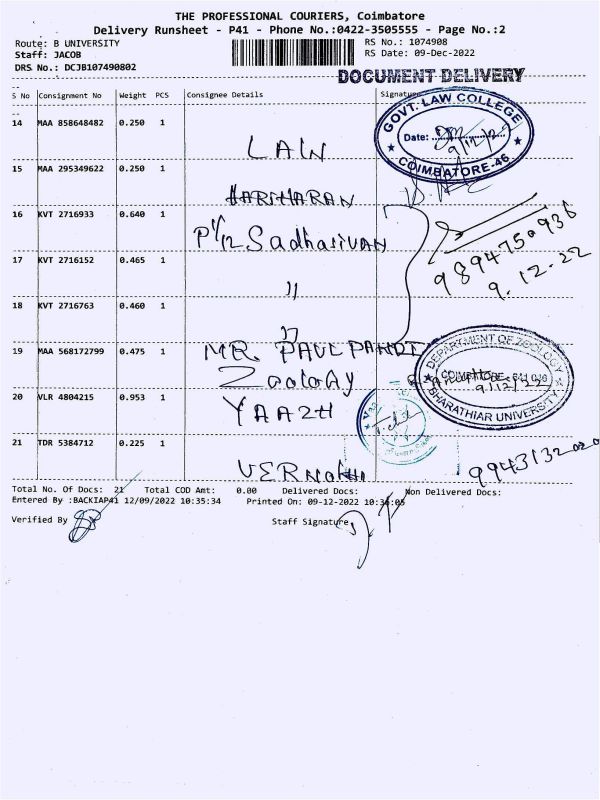 THE PROFESSIONAL COURIERS, Coimbatore
Delivery Runsheet - P41 - Phone No.:0422-3505555 - Page No.:2
Route: B UNIVERSITY
RS No.: 1074908
Staff: JACOB
RS Date: 09-Dec-2022
DRS No.: DCJB107490802
DOCUMENT DELIVERY
S No Consignment No Weight PCS Consignee Details Signature
GOVT. LAW COLLEGE
14 MAA 858648482 0.250 1
Date: 9/12/22
LAW
COIMBATORE-46
15 MAA 295349622 0.250 1
HARIHARAN
16 KVT 2716933 0.640 1
P1/12 Sadhasivan
9894750936
17 KVT 2716152 0.465 1
9.12.22
"
18 KVT 2716763 0.460 1
"
19 MAA 568172799 0.475 1 MR. PAUL PANDI
DEPARTMENT OF ZOOLOGY
Zoology
COIMBATORE - 641 046
9/12/22
BHARATHIAR UNIVERSITY
20 VLR 4804215 0.953 1
YAAZH
21 TDR 5384712 0.225 1
9943132020
Total No. Of Docs: 21 Total COD Amt: 0.00 Delivered Docs: Non Delivered Docs:
Entered By :BACKIAP41 12/09/2022 10:35:34 Printed On: 09-12-2022 10:36:05
Verified By Staff Signature